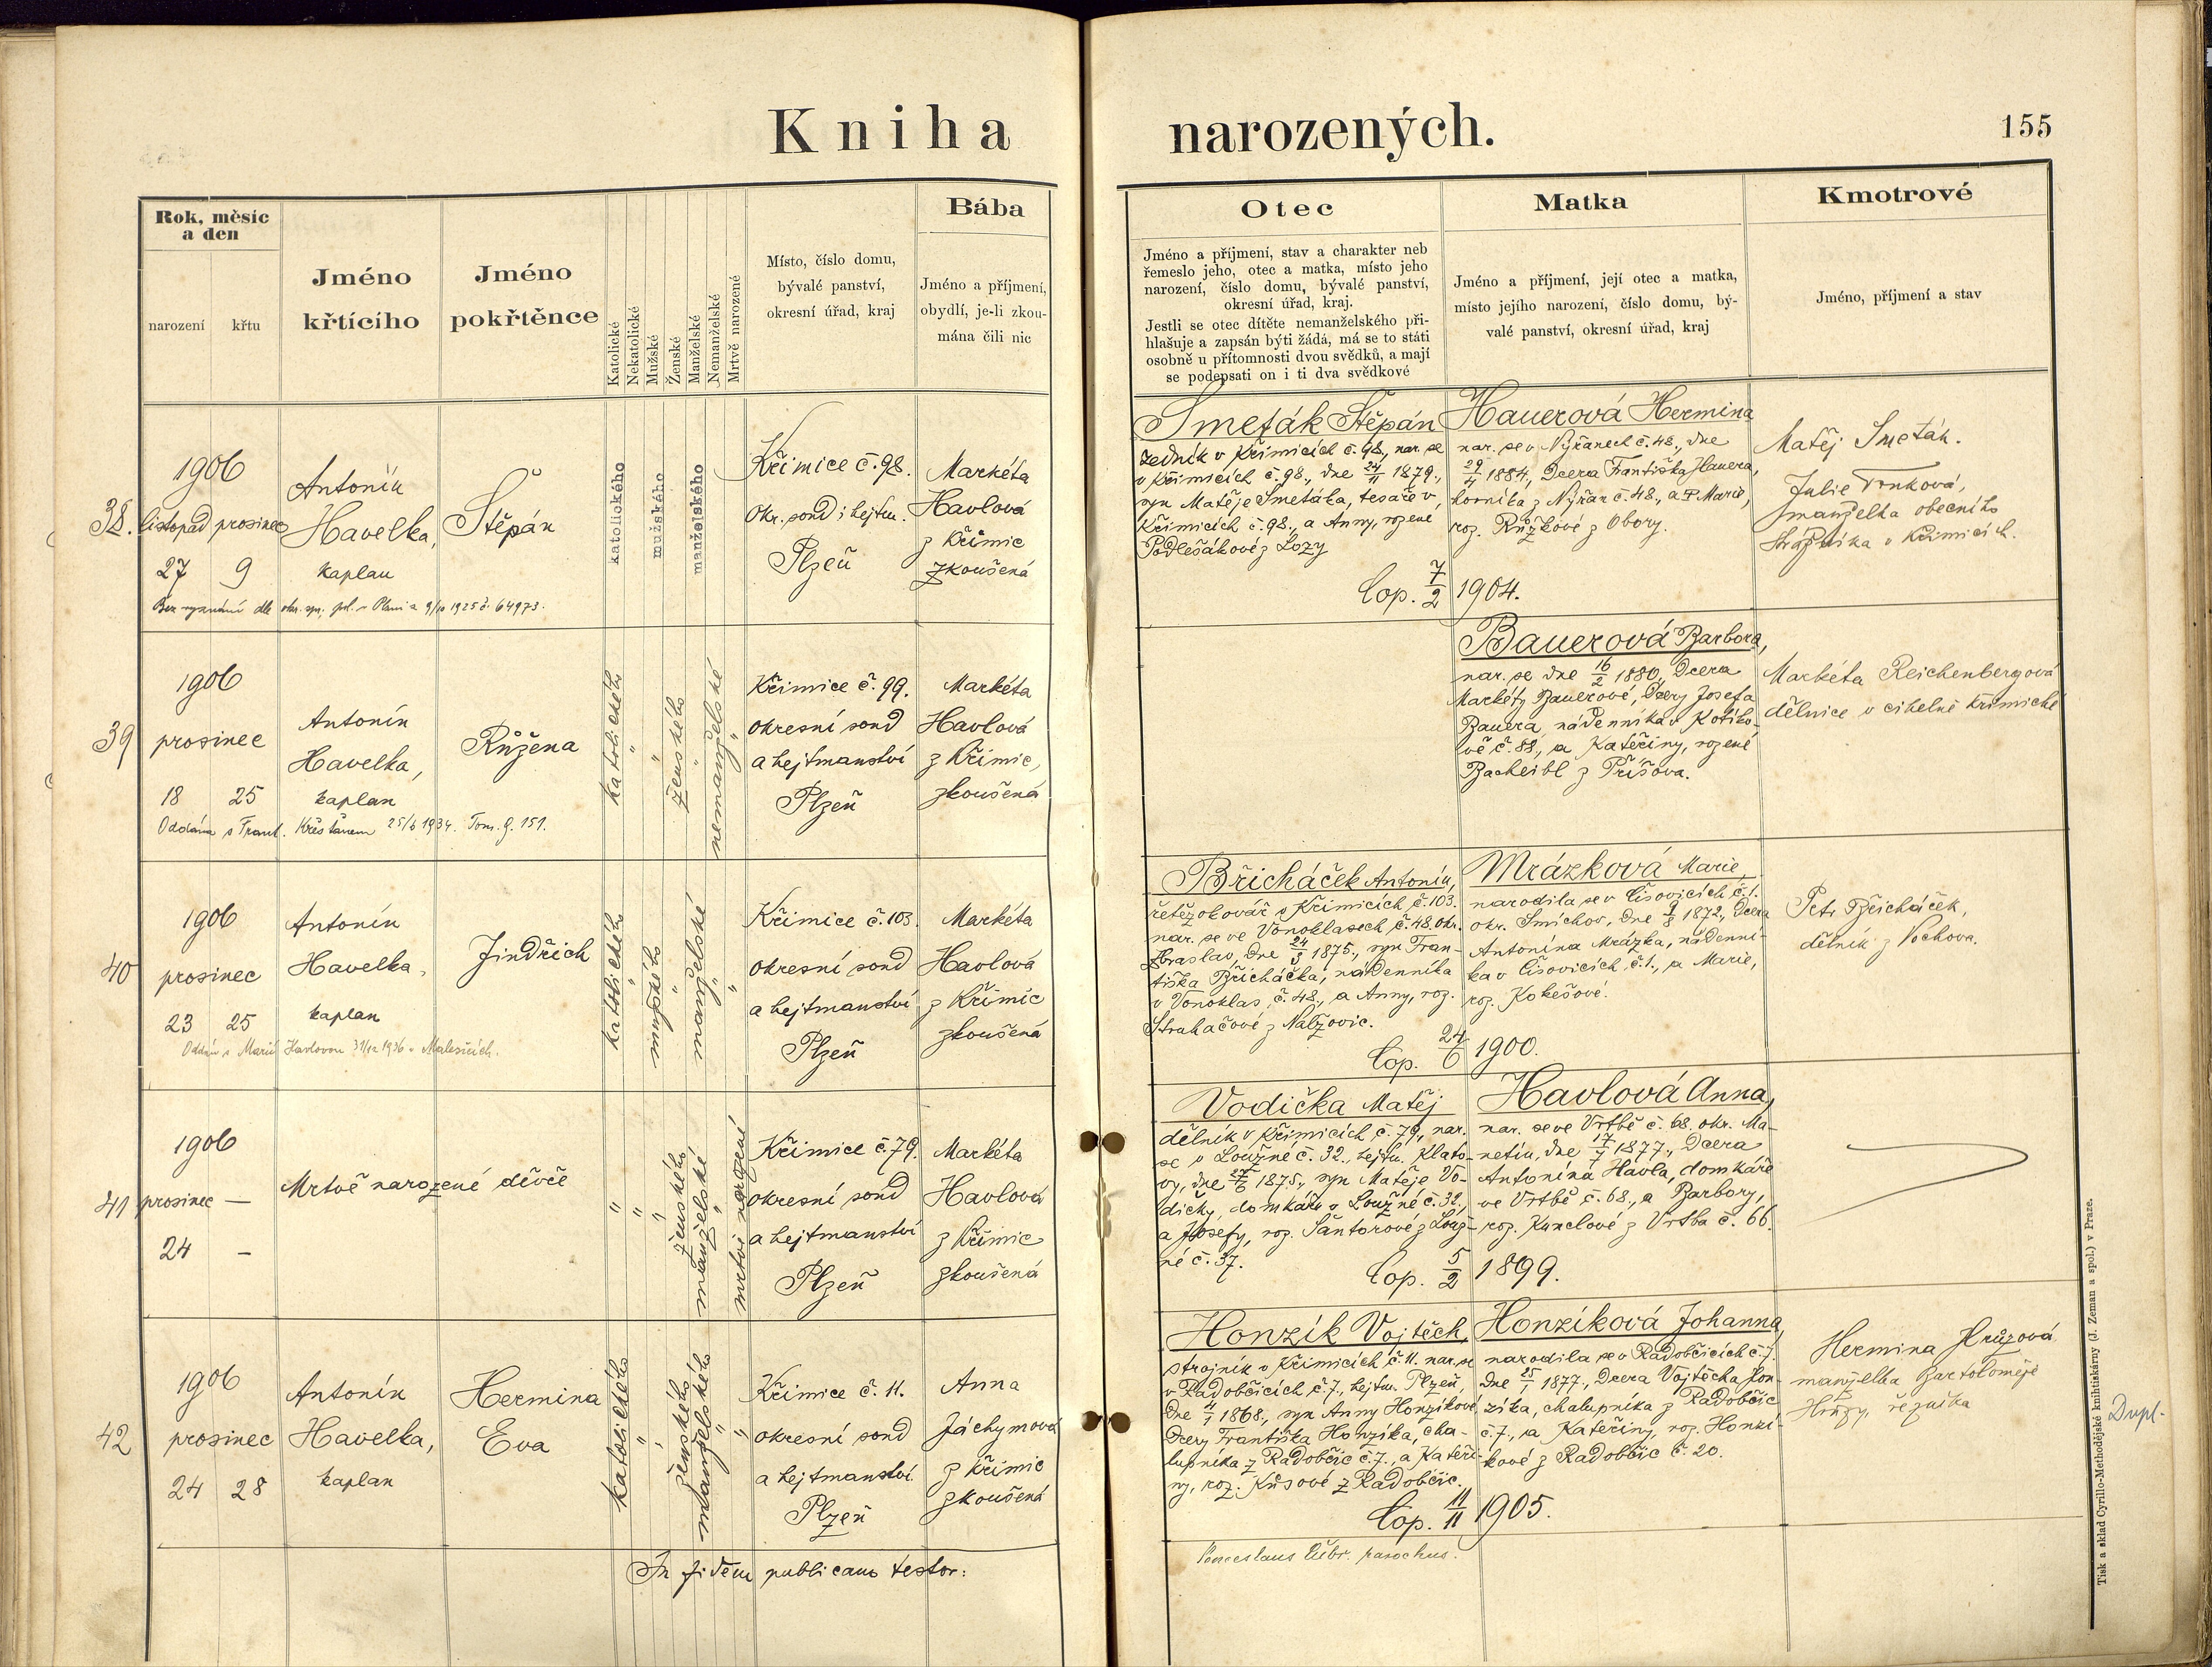 Kniha narozených.
155
Rok, měsíc
a den
narození
křtu
Jméno
křtícího
Jméno
pokřtěnce
Katolické
Nekatolické
Mužské
Ženské
Manželské
Nemanželské
Mrtvě narozené
Místo, číslo domu,
bývalé panství,
okresní úřad, kraj
Bába
Jméno a příjmení,
obydlí, je-li zkou-
mána čili nic
Otec
Jméno a příjmení, stav a charakter neb
řemeslo jeho, otec a matka, místo jeho
narození, číslo domu, bývalé panství,
okresní úřad, kraj.
Jestli se otec dítěte nemanželského při-
hlašuje a zapsán býti žádá, má se to státi
osobně u přítomnosti dvou svědků, a mají
se podepsati on i ti dva svědkové
Matka
Jméno a příjmení, její otec a matka,
místo jejího narození, číslo domu, bý-
valé panství, okresní úřad, kraj
Kmotrové
Jméno, příjmení a stav
38.
1906
listopad prosinec
27 9
Antonín
Havelka,
kaplan
Štěpán
katolického
mužského
manželského
Křimice č. 98.
okr. soud i hejtm.
Plzeň
Markéta
Havlová
z Křimic
zkoušená
Bez vyznání dle okr. spr. pol. v Plzni z 9/10 1925 č. 64973.
Smeták Štěpán
zedník v Křimicích č. 98., nar. se
v Křimicích č. 98., dne 24/11 1879.,
syn Matěje Smetáka, tesaře v
Křimicích č. 98., a Anny, rozené
Podlešákové z Lozy
Hauerová Hermina
nar. se v Nýřanech č. 48., dne
29/4 1884., dcera Františka Hauera,
horníka z Nýřan č. 48., a Marie,
roz. Růžkové z Obory.
Cop. 7/2 1904.
Matěj Smeták.
Julie Trnková,
manželka obecního
strážníka v Křimicích.
39
1906
prosinec
18 25
Antonín
Havelka,
kaplan
Růžena
katolického
"
"
ženského
"
nemanželské
"
Křimice č. 99.
okresní soud
a hejtmanství
Plzeň
Markéta
Havlová
z Křimic,
zkoušená
Oddána s Frant. Křesťanem 25/6 1934. Tom. 9. 151.
Bauerová Barbora,
nar. se dne 16/2 1880, dcera
Markéty Bauerové, dcery Josefa
Bauera, nádenníka v Kotíko-
vě č. 88., a Kateřiny, rozené
Bacheibl z Příšova.
Markéta Reichenbergová
dělnice v cihelně křimické
40
1906
prosinec
23 25
Antonín
Havelka,
kaplan
Jindřich
katolického
"
mužského
"
manželské
"
"
Křimice č. 103.
okresní soud
a hejtmanství
Plzeň
Markéta
Havlová
z Křimic
zkoušená
Oddán s Marií Havlovou 31/12 1936 v Malesicích.
Břicháček Antonín,
řetězokovář v Křimicích č. 103.
nar. se ve Vonoklasech č. 48. okr.
Zbraslav, dne 24/5 1875., syn Fran-
tiška Břicháčka, nádenníka
v Vonoklas č. 48., a Anny, roz.
Struhačové z Nalžovic.
Mrázková Marie,
narodila se v Čisovicích č. 1.
okr. Smíchov, dne 9/8 1872., dcera
Antonína Mrázka, nádenní-
ka v Čisovicích č. 1., a Marie,
roz. Kokešové.
Cop. 24/6 1900.
Petr Břicháček,
dělník z Vochova.
41
1906
prosinec —
24 —
Mrtvě narozené děvče
"
"
"
ženského
manželské
"
mrtvě narozené
Křimice č. 79.
okresní soud
a hejtmanství
Plzeň
Markéta
Havlová
z Křimic
zkoušená
Vodička Matěj
dělník v Křimicích č. 79., nar.
se v Loužné č. 32., hejtm. Klato-
vy, dne 27/6 1875., syn Matěje Vo-
dičky, domkáře v Loužné č. 32.,
a Josefy, roz. Šantorové z Louž-
né č. 37.
Havlová Anna,
nar. se ve Vrtbě č. 68. okr. Ma-
netín, dne 17/4 1877., dcera
Antonína Havla, domkáře
ve Vrtbě č. 68., a Barbory,
roz. Kunclové z Vrtba č. 66.
Cop. 5/2 1899.
42
1906
prosinec
24 28
Antonín
Havelka,
kaplan
Hermina
Eva
katolického
"
"
ženského
manželského
"
"
Křimice č. 11.
okresní soud
a hejtmanství
Plzeň
Anna
Jáchymová
z Křimic
zkoušená
Honzík Vojtěch,
strojník v Křimicích č. 11. nar. se
v Radobčicích č. 7., hejtm. Plzeň,
dne 4/1 1868., syn Anny Honzíkové,
dcery Františka Honzíka, cha-
lupníka z Radobčic č. 7., a Kateři-
ny, roz. Kůsové z Radobčic.
Honzíková Johanna,
narodila se v Radobčicích č. 7.
dne 25/1 1877., dcera Vojtěcha Hon-
zíka, chalupníka z Radobčic
č. 7., a Kateřiny, roz. Honzí-
kové z Radobčic č. 20.
Cop. 11/11 1905.
Hermina Hrůzová
manželka Bartoloměje
Hrůzy, řezníka
Dupl.
In fidem publicam testor:
parochus.
Tisk a sklad Cyrillo-Methodějské knihtiskárny (J. Zeman a spol.) v Praze.